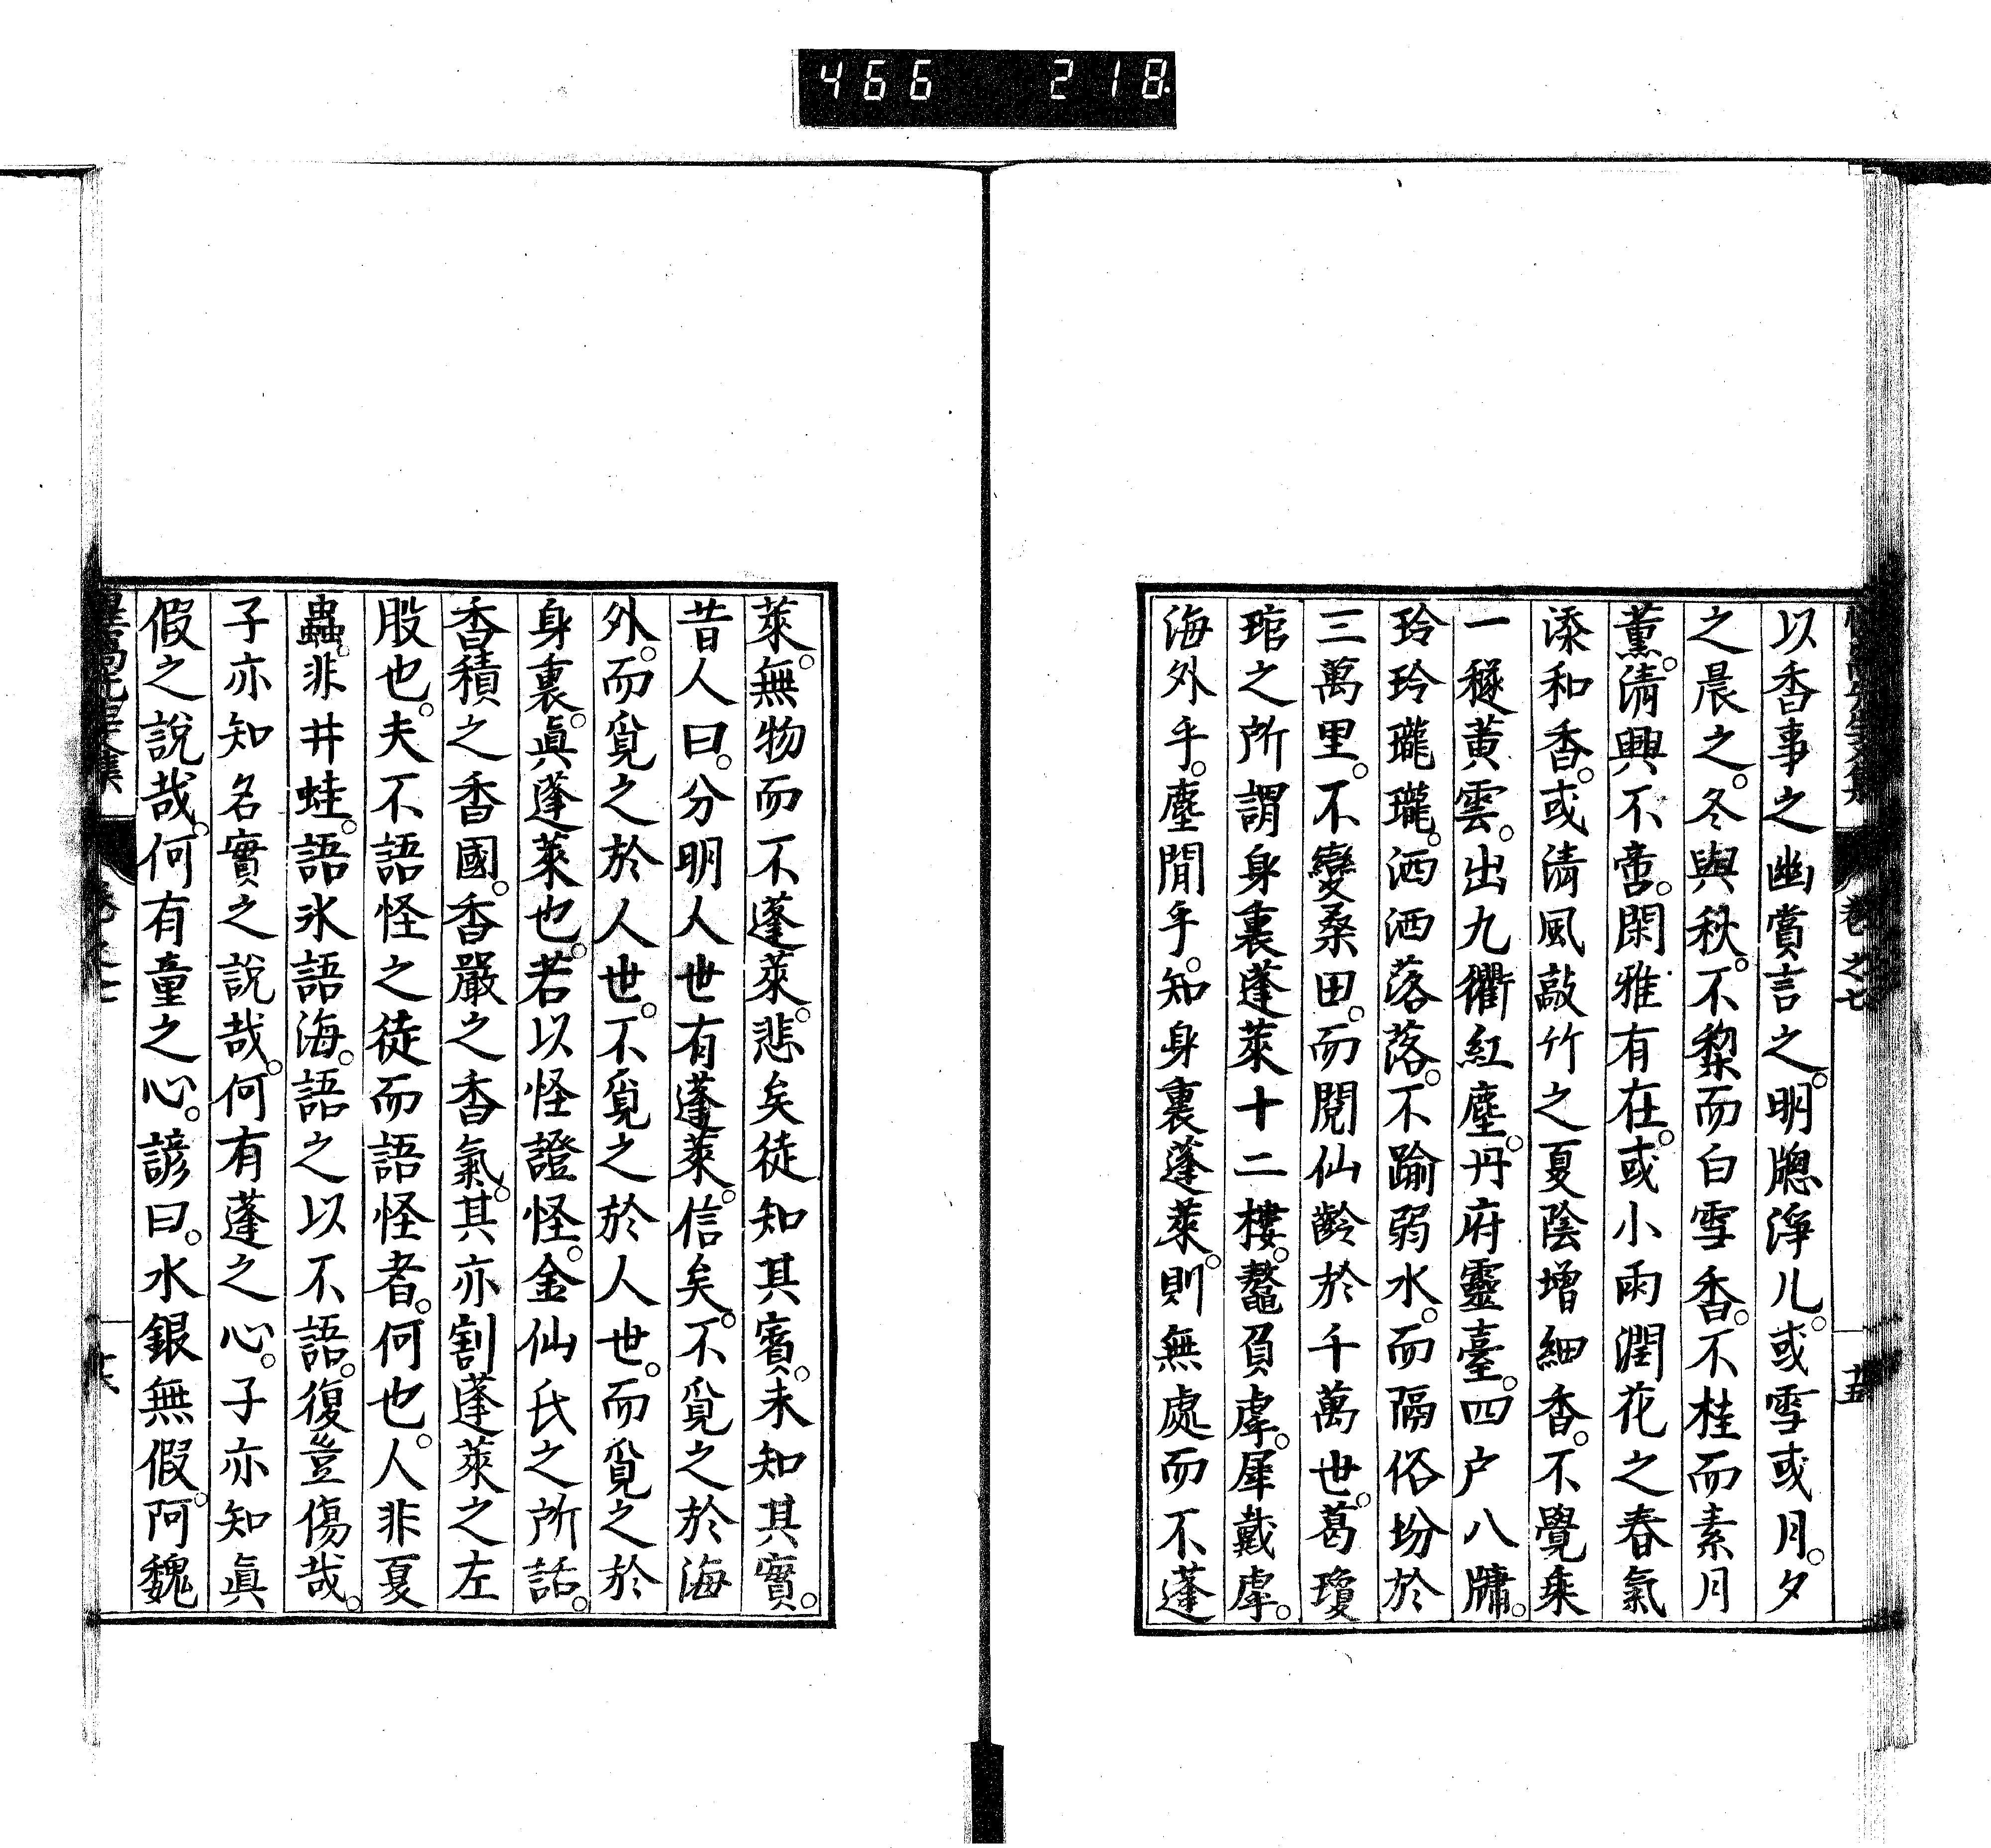 466 218
以香事之幽賞言之。明牕淨几。或雪或月。夕
之晨之。冬與秋。不黎而白雪香。不桂而素月
薰。清興不啻。閑雅有在。或小雨潤花之春氣
添和香。或清風敲竹之夏陰增細香。不覺乘
一穟黃雲。出九衢紅塵。丹府靈臺。四戶八牗。
玲玲瓏瓏。洒洒落落。不踰弱水。而隔俗坋於
三萬里。不變桑田。而閱仙齡於千萬世。葛瓊
琯之所謂身裏蓬萊十二樓。鼇負虖。犀戴虖。
海外乎。塵間乎。知身裏蓬萊。則無處而不蓬
萊。無物而不蓬萊。悲矣徒知其賓。未知其實。
昔人曰。分明人世有蓬萊。信矣。不覓之於海
外。而覓之於人世。不覓之於人世。而覓之於
身裏。眞蓬萊也。若以怪證怪。金仙氏之所話。
香積之香國。香嚴之香氣。其亦割蓬萊之左
股也。夫不語怪之徒而語怪者。何也。人非夏
蟲。非井蛙。語氷語海。語之以不語。復豈傷哉。
子亦知名實之說哉。何有蓬之心。子亦知眞
假之說哉。何有童之心。諺曰。水銀無假。阿魏